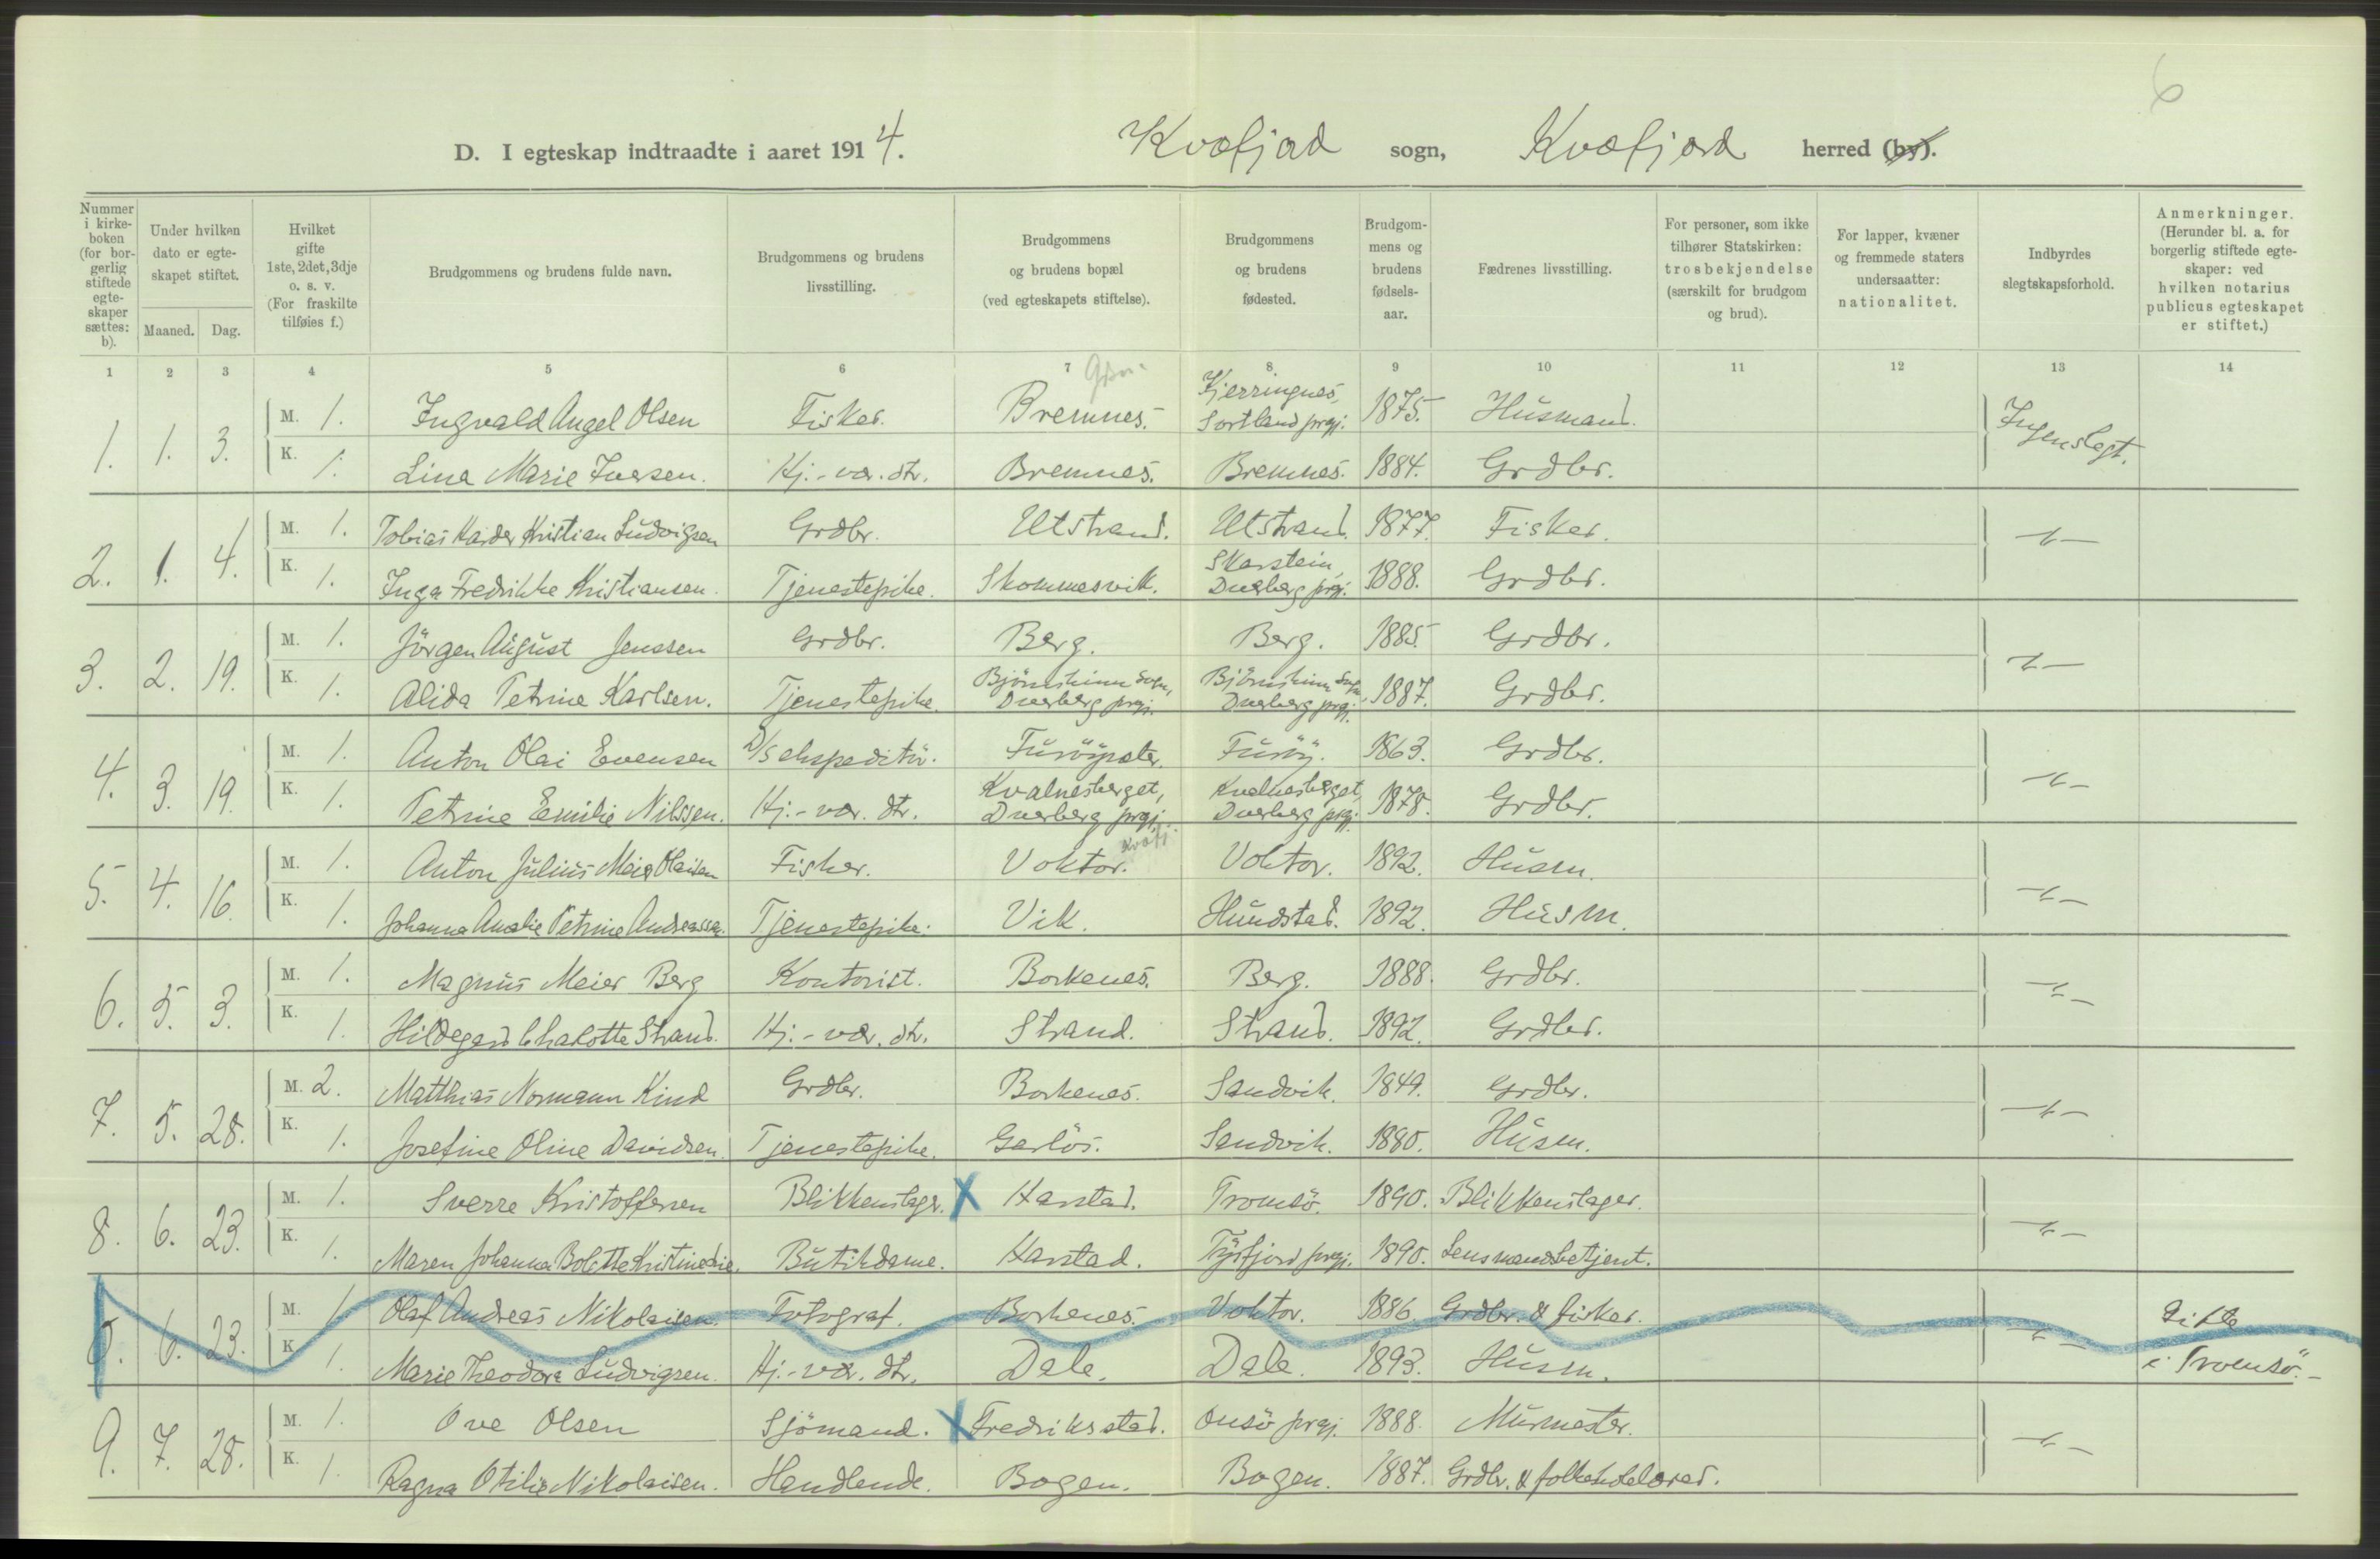 6
D. I egteskap indtraadte i aaret 1914. Kvæfjord sogn, Kvæfjord herred (by).
Nummer i kirkeboken (for borgerlig stiftede egteskaper sættes: b).
Under hvilken dato er egteskapet stiftet.
Maaned. Dag.
Hvilket gifte 1ste, 2det, 3dje o. s. v. (For fraskilte tilføies f.)
Brudgommens og brudens fulde navn.
Brudgommens og brudens livsstilling.
Brudgommens og brudens bopæl (ved egteskapets stiftelse).
Brudgommens og brudens fødested.
Brudgommens og brudens fødselsaar.
Fædrenes livsstilling.
For personer, som ikke tilhører Statskirken: trosbekjendelse (særskilt for brudgom og brud).
For lapper, kvæner og fremmede staters undersaatter: nationalitet.
Indbyrdes slegtskapsforhold.
Anmerkninger. (Herunder bl. a. for borgerlig stiftede egteskaper: ved hvilken notarius publicus egteskapet er stiftet.)
1 2 3 4 5 6 7 8 9 10 11 12 13 14
1. 1. 3. M. 1. Ingvald Angel Olsen Fisker. Bremnes. Kjerringnes, Sortland prgj. 1875. Husmand. Ingen slegt.
K. 1. Lina Marie Iversen. Hj.-vær. dtr. Bremnes. Bremnes. 1884. Grdbr.
2. 1. 4. M. 1. Tobias Harder Kristian Ludvigsen Grdbr. Utstrand. Utstrand. 1877. Fisker. -"-
K. 1. Inga Fredrikke Kristiansen. Tjenestepike. Skommesvik. Skarstein, Dverberg prgj. 1888. Grdbr.
3. 2. 19. M. 1. Jörgen August Jenssen Grdbr. Berg. Berg. 1885 Grdbr. -"-
K. 1. Alida Petrine Karlsen. Tjenestepike. Björnskinn sogn, Dverberg prgj. Björnskinn sogn, Dverberg prgj. 1887. Grdbr.
4. 3. 19. M. 1. Anton Olai Evensen D/S ekspeditör. Fusöy. 1863. Grdbr. -"-
K. 1. Petrine Emilie Nilssen. Hj.-vær. dtr. Kvalnesberget, Dverberg prgj. Kvalnesberget, Dverberg prgj. 1878. Grdbr.
5. 4. 16. M. 1. Anton Julius Meier Olaisen Fisker. Voktor. Kvæfj. Voktor. 1892. Husm. -"-
K. 1. Johanna Amalie Petrine Andreassen. Tjenestepike. Vik. Hundstad. 1892. Husm.
6. 5. 3. M. 1. Magnus Meier Berg Kontorist. Borkenes. Berg. 1888. Grdbr. -"-
K. 1. Hildegard Charlotte Strand. Hj.-vær. dtr. Strand. Strand. 1892. Grdbr.
7. 5. 28. M. 2. Matthias Normann Kind Grdbr. Borkenes. Sandvik. 1849. Grdbr. -"-
K. 1. Josefine Oline Davidsen. Tjenestepike. Garlös. Sandvik. 1880. Husm.
8. 6. 23. M. 1. Sverre Kristoffersen Blikkenslager. X Harstad. Tromsö. 1890. Blikkenslager. -"-
K. 1. Maren Johanna Bolette Butikdame. Harstad. Tysfjord prgj. 1890. Lensmandsbetjent.
6. 23. M. 1. Olaf Andreas Nikolaisen. Fotograf. Borkenes. Voktor. 1886. Grdbr. & fisker. -"- Gifte
K. 1. Marie Theodora Ludvigsen. Hj.-vær. dtr. Dale. Dale. 1893. Husm. i Tromsö.-
9. 7. 28. M. 1. Ove Olsen Sjömand. X Fredriksstad. Onsö prgj. 1888. Murmester. -"-
K. 1. Ragna Otilie Nikolaisen. Handlende. Bogen. Bogen. 1887. Grdbr. & folkeskolelærer.